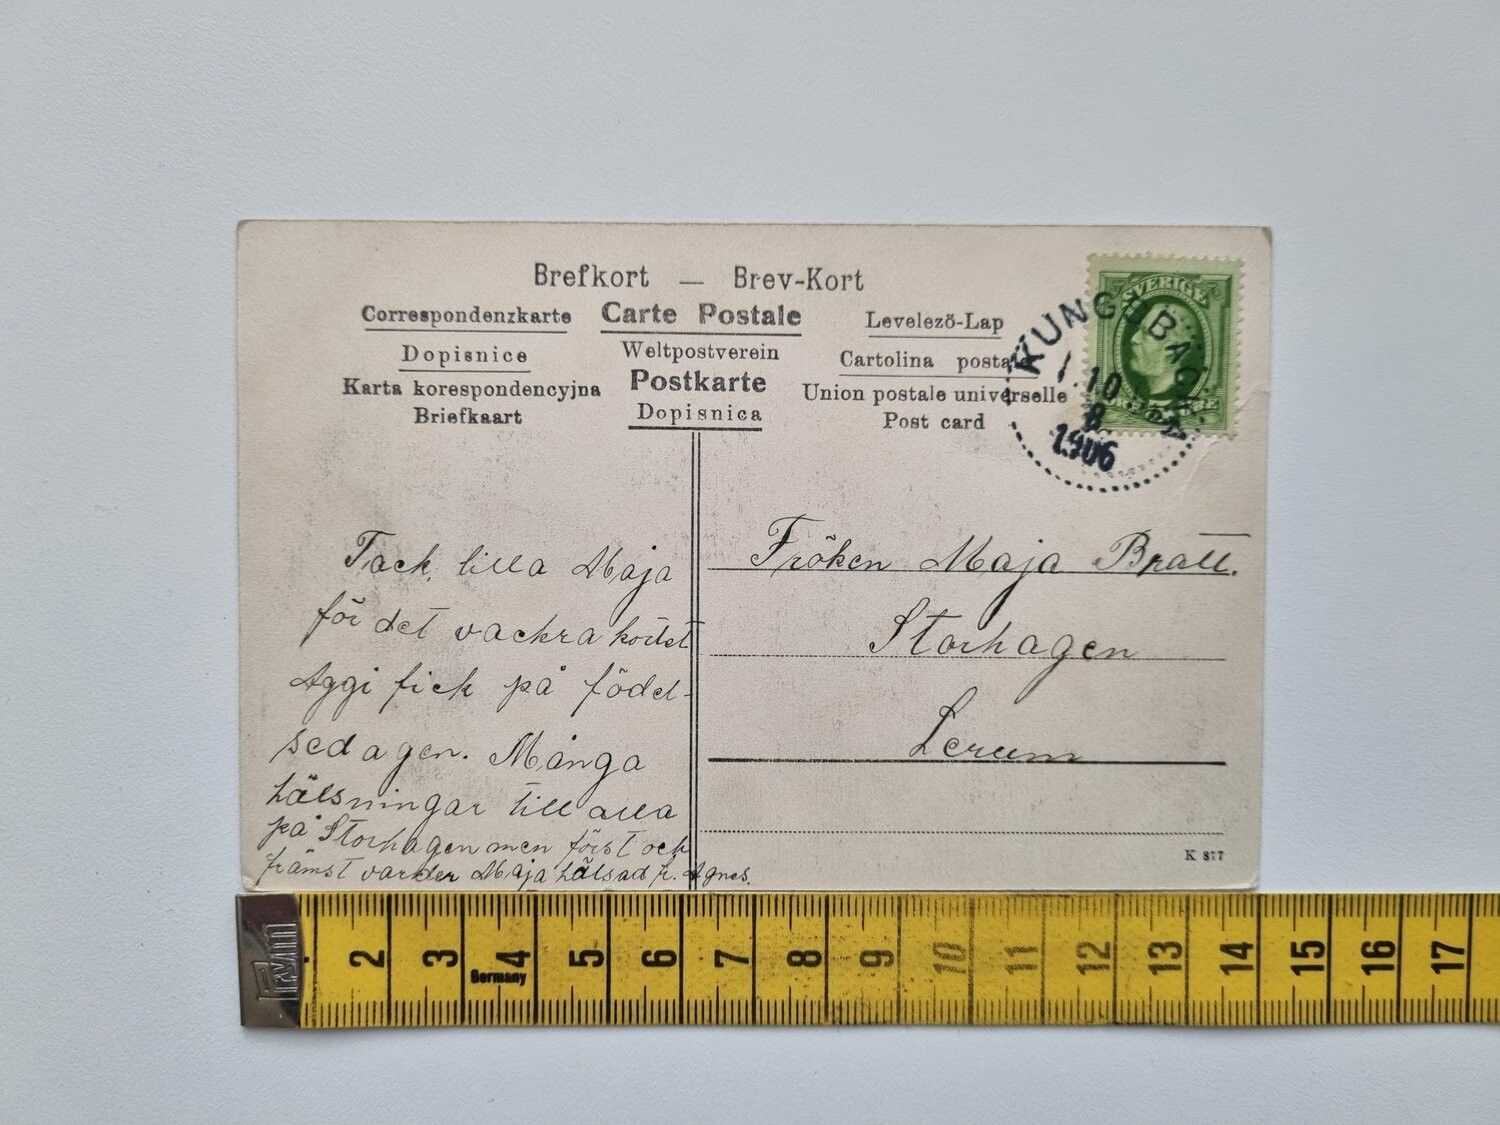 Brefkort — Brev-Kort
Correspondenzkarte Carte Postale Levelező-Lap
Dopisnice Weltpostverein Cartolina postale
Karta korespondencyjna Postkarte Union postale universelle
Briefkaart Dopisnica Post card
SVERIGE
KUNGSBACKA
1.10
8
1906
Tack, lilla Maja
för det vackra kortet
Aggi fick på födel-
sedagen. Många
hälsningar till alla
på Storhagen men först och
främst varder Maja hälsad fr. Agnes.
Fröken Maja Bratt.
Storhagen
Lerum
K 877
Prym
2 3 4 5 6 7 8 9 10 11 12 13 14 15 16 17
Germany